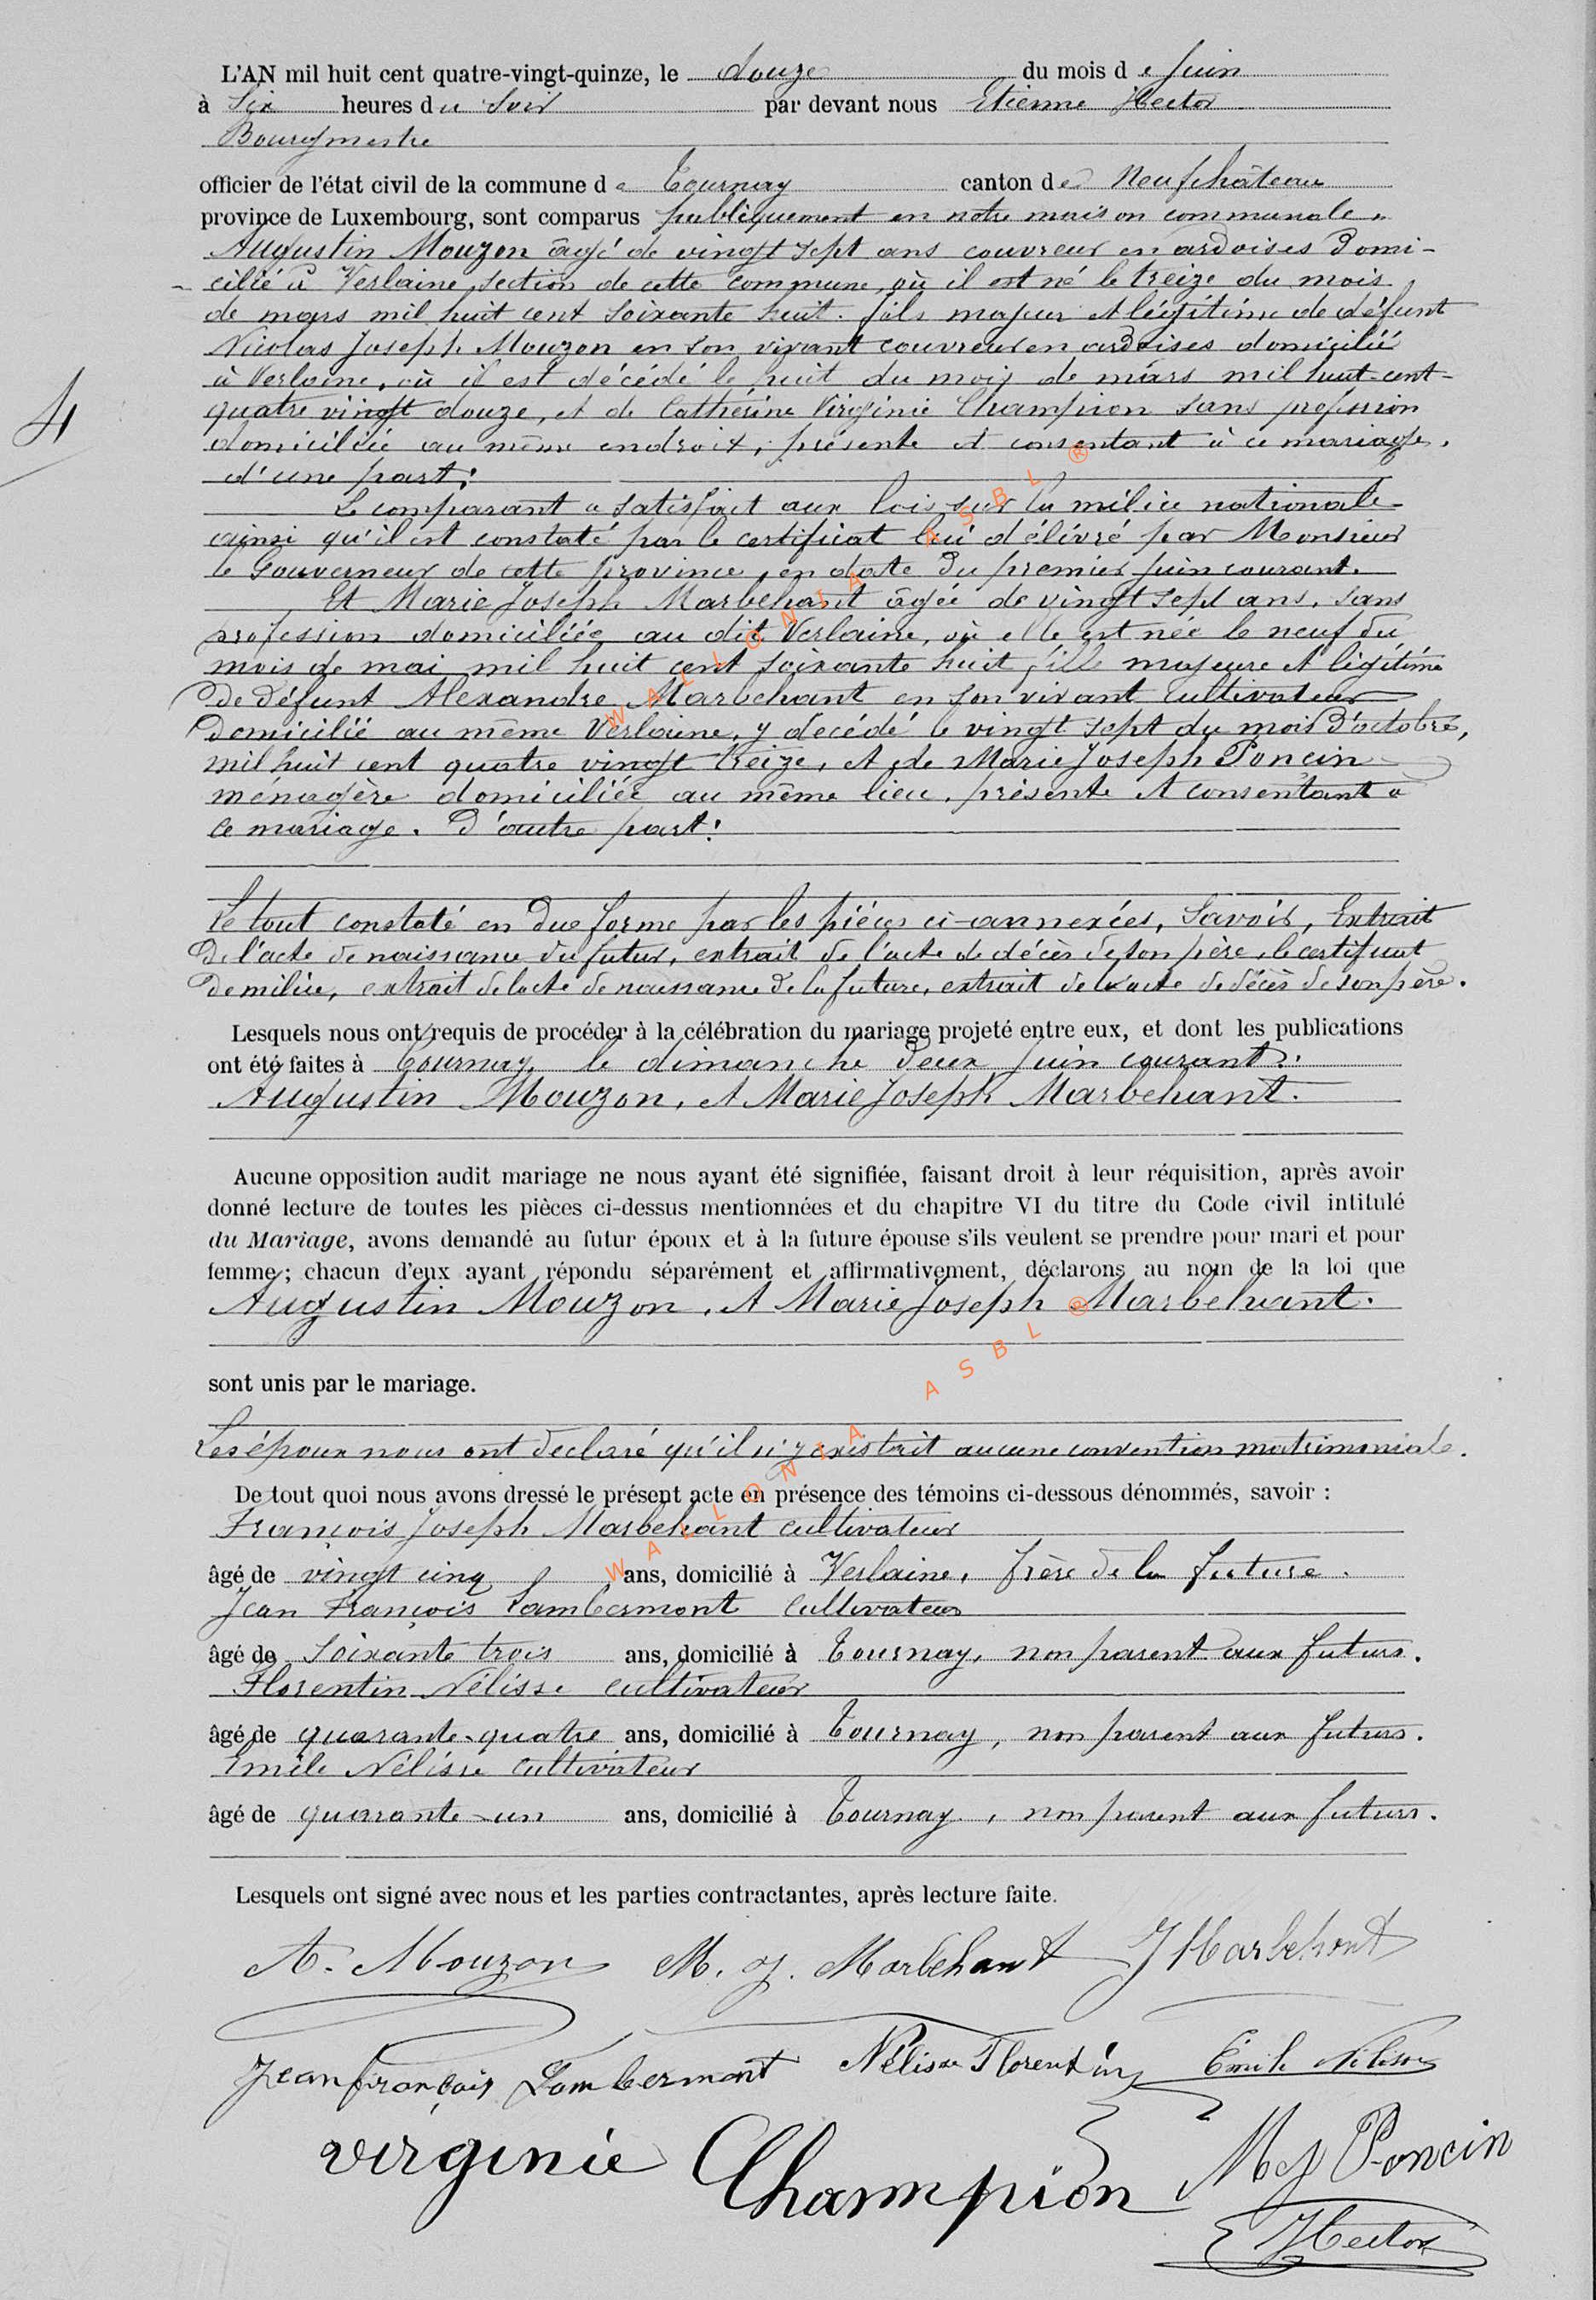 L'AN mil huit cent quatre-vingt-quinze, le douze du mois de Juin
à Six heures du Soir par devant nous Etienne Hector
Bourgmestre
officier de l'état civil de la commune de Tournay canton de Neufchâteau
province de Luxembourg, sont comparus publiquement en notre maison communale.
Augustin Mouzon âgé de vingt sept ans couvreur en ardoises Domi-
cilié à Verlaine, section de cette commune, où il est né le treize du mois
de mars mil huit cent soixante huit. fils majeur et légitime de défunt
Nicolas Joseph Mouzon en son vivant couvreur en ardoises domicilié
à Verlaine, où il est décédé le huit du mois de mars mil huit cent
quatre vingt douze, et de Cathérine Virginie Champion sans profession
4
domiciliée au même endroit, présente et consentant à ce mariage.
d'une part:
Le comparant a satisfait aux lois sur la milice nationale
ainsi qu'il est constaté par le certificat lui délivré par Monsieur
le Gouverneur de cette province, en date du premier juin courant.
Et Marie Joseph Marbehant âgée de vingt sept ans, sans
profession domiciliée au dit Verlaine, où elle est née le neuf du
mois de mai mil huit cent soixante huit fille majeure et légitime
de défunt Alexandre Marbehant en son vivant cultivateur
domicilié au même Verlaine, y décédé le vingt sept du mois d'octobre,
mil huit cent quatre vingt treize, et de Marie Joseph Poncin
ménagère domiciliée au même lieu, présente et consentant à
ce mariage. D'autre part:
Le tout constaté en due forme par les pièces ci-annexées, Savoir, Extrait
de l'acte de naissance du futur, extrait de l'acte de décès de son père, le certificat
de milice, extrait de l'acte de naissance de la future, extrait de l'acte de décès de son père.
Lesquels nous ont requis de procéder à la célébration du mariage projeté entre eux, et dont les publications
ont été faites à Tournay, le dimanche deux juin courant:
Augustin Mouzon, et Marie Joseph Marbehant.
Aucune opposition audit mariage ne nous ayant été signifiée, faisant droit à leur réquisition, après avoir
donné lecture de toutes les pièces ci-dessus mentionnées et du chapitre VI du titre du Code civil intitulé
du Mariage, avons demandé au futur époux et à la future épouse s'ils veulent se prendre pour mari et pour
femme; chacun d'eux ayant répondu séparément et affirmativement, déclarons au nom de la loi que
Augustin Mouzon, et Marie Joseph Marbehant.
sont unis par le mariage.
Les époux nous ont declaré qu'il n'y existait aucune convention matrimoniale.
De tout quoi nous avons dressé le présent acte en présence des témoins ci-dessous dénommés, savoir :
François Joseph Marbehant cultivateur
âgé de vingt cinq ans, domicilié à Verlaine, frère de la future.
Jean François Lambermont cultivateur
âgé de soixante trois ans, domicilié à Tournay, non parent aux futurs.
Florentin Nélisse cultivateur
âgé de quarante-quatre ans, domicilié à Tournay, non parent aux futurs.
Emile Nélisse cultivateur
âgé de quarante-un ans, domicilié à Tournay, non parent aux futurs.
Lesquels ont signé avec nous et les parties contractantes, après lecture faite.
A. Mouzon M. J. Marbehant J Marbehant
Jean françois Lambermont Nélisse Florentin Emile Nélisse
virginie Champion M J Poncin
E Hector
WALLONIA ASBL ®
WALLONIA ASBL ®